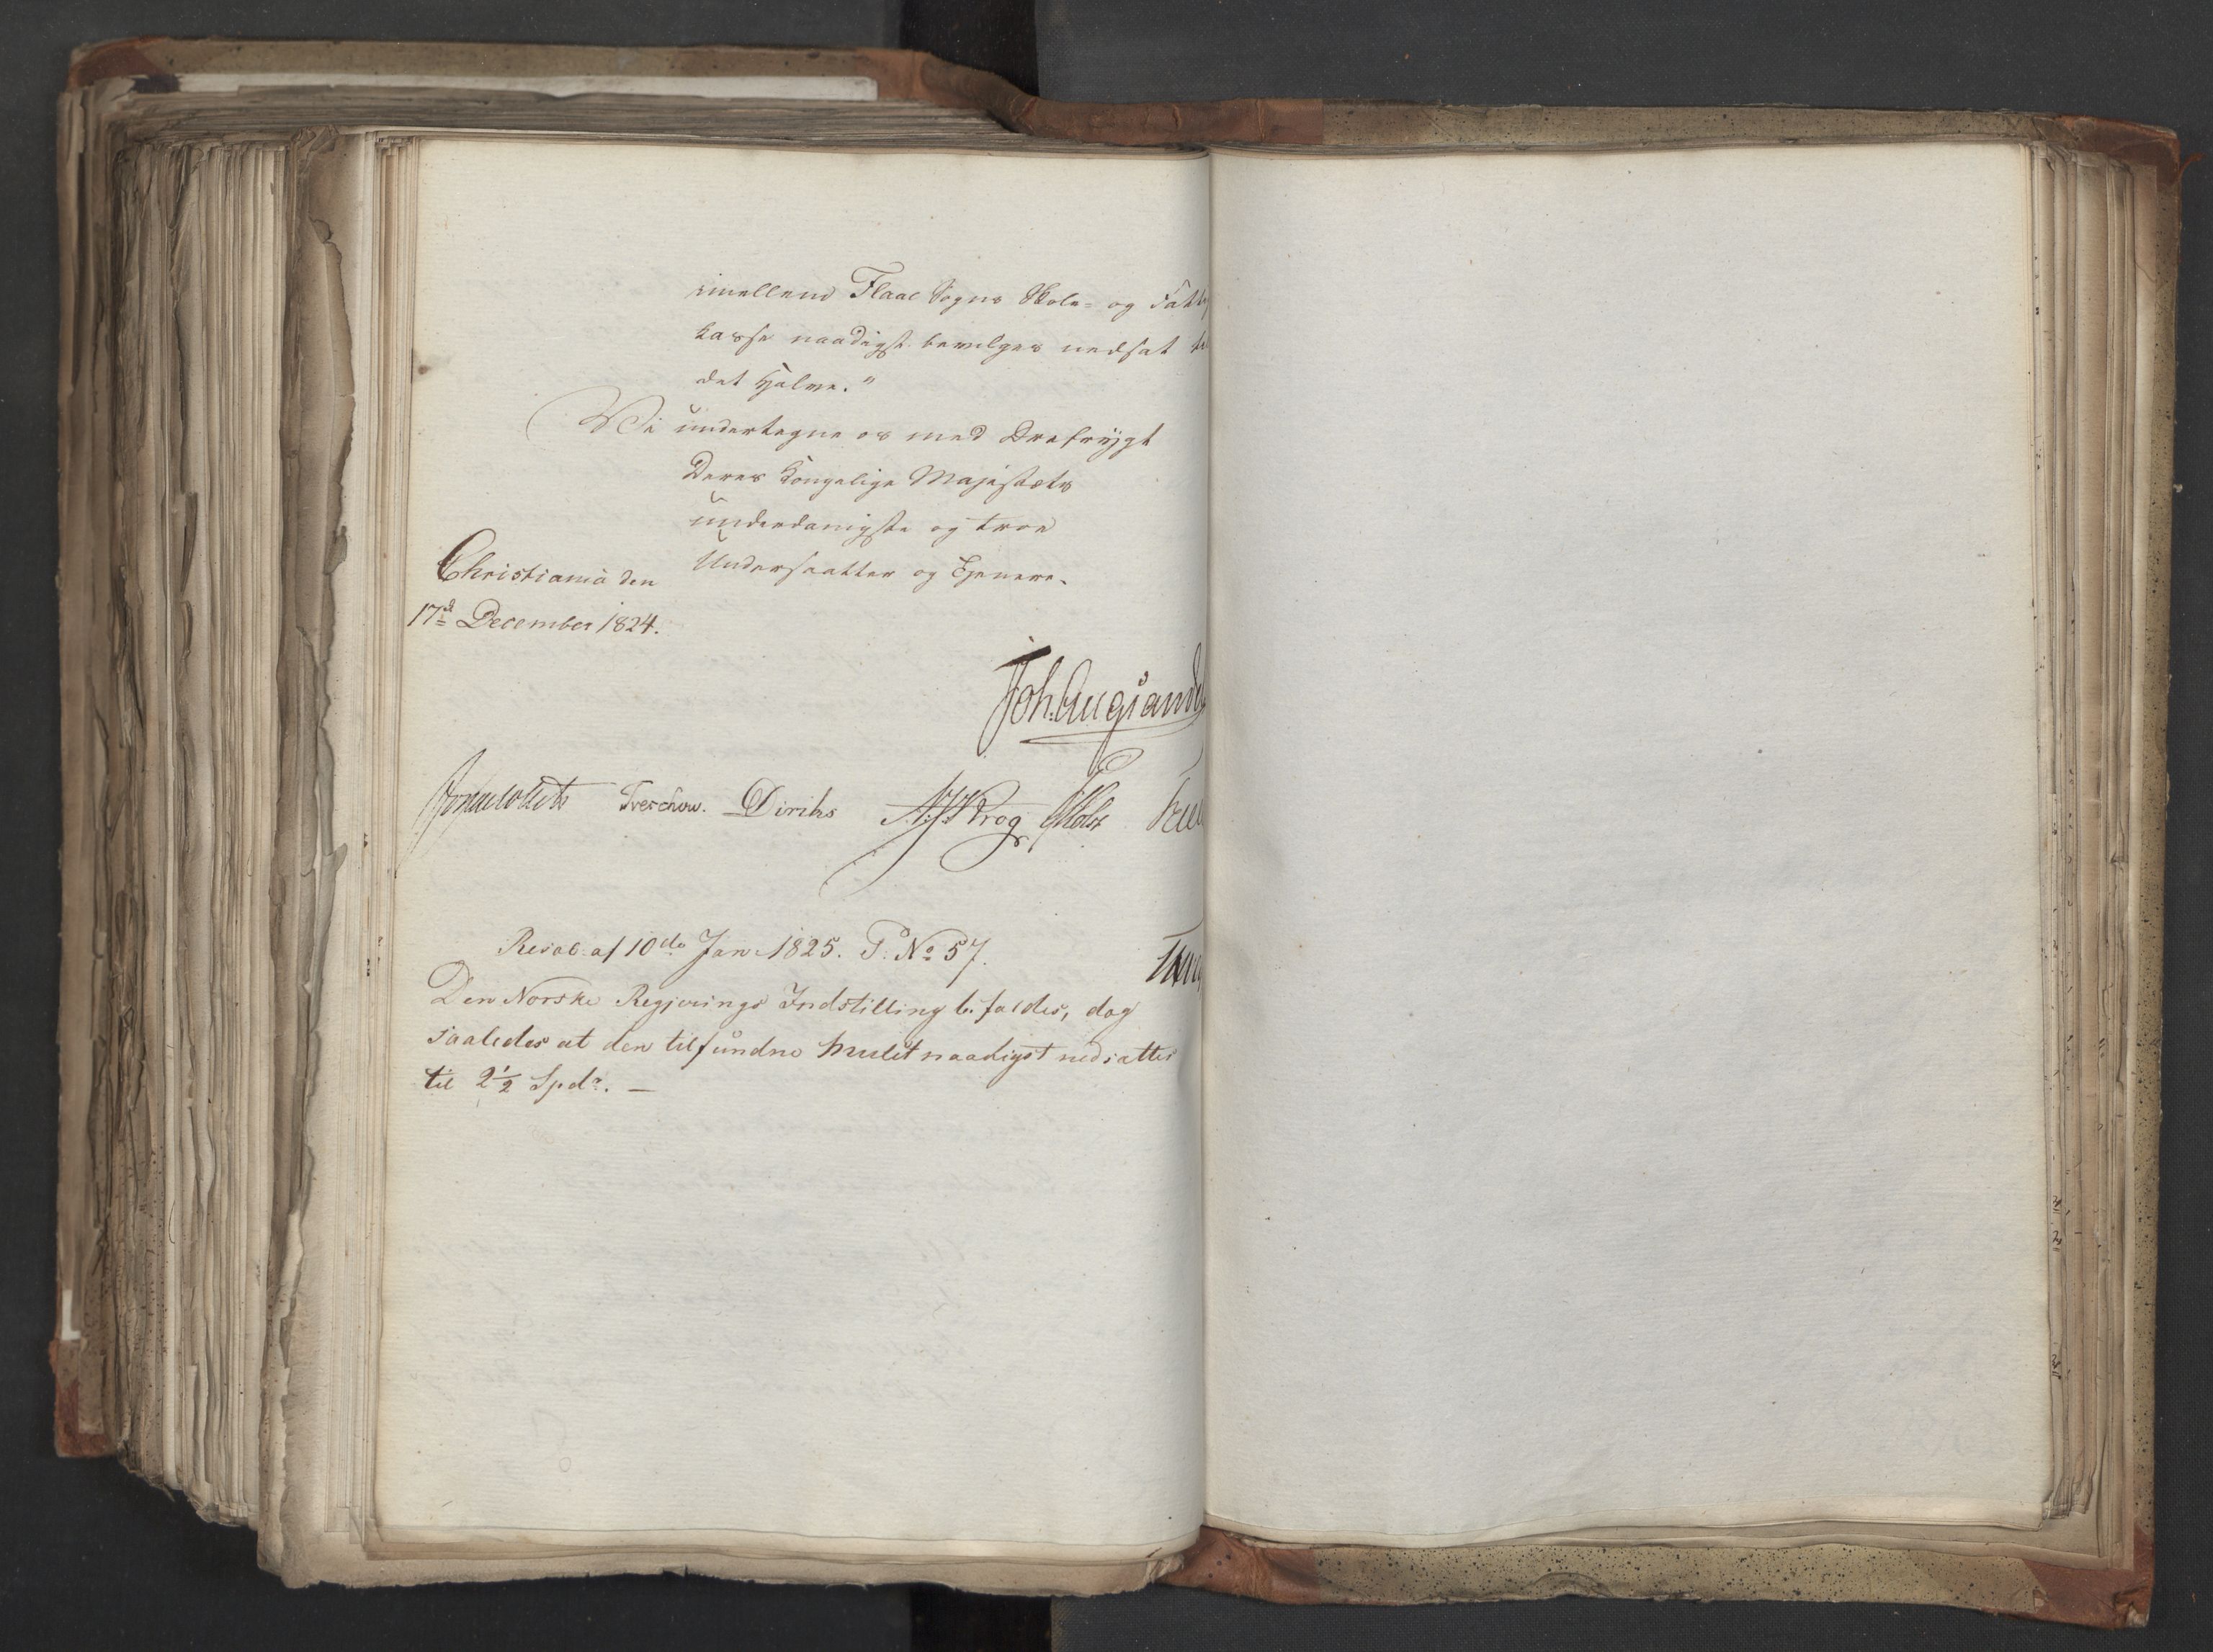 imellem Flaae Sogns Skole- og Fattig
kasse naadigst bevilges nedsat til
det Halve."
Vi undertegne os med Ærefrygt
Deres Kongelige Majestæts
underdanigste og troe
Undersaatter og Tjenere.
Christiania den
17d December 1824.
Joh. Aug. Sandels
Treschow. Diriks Krog Holst
Resol: af 10de Jan. 1825. P. No 57.
Den Norske Regjerings Indstilling bifaldes, dog
saaledes at den tilfundne Mulct naadigst nedsattes
til 2½ Spdr. —